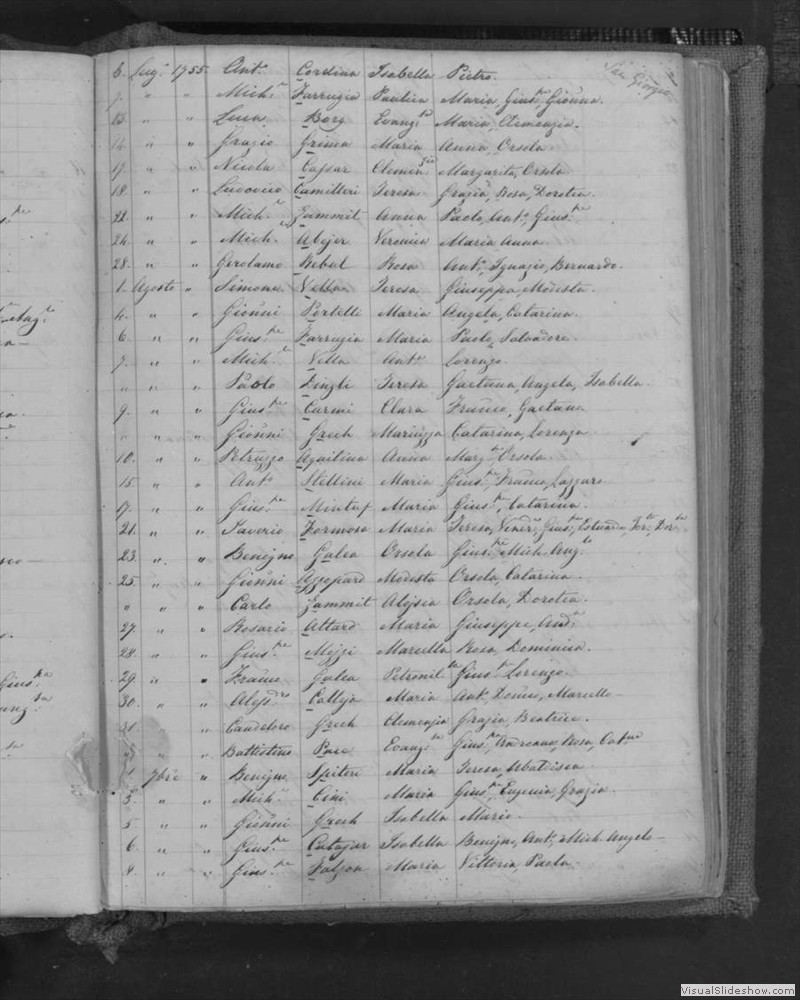 San Giorgio
6. Lug.o 1755. Ant.o Cordina Isabella Pietro.
7. " " Mich.e Farrugia Paulica Maria, Gius.a, Gioñna.
13. " " Luca Borg Evang.ta Maria, Clemenzia.
14. " " Grazio Grima Maria Anna, Orsola.
17. " " Nicola Cassar Clemenzia Margarita, Orsola.
18. " " Ludovico Camilleri Teresa Grazia, Rosa, Dorotea.
21. " " Mich.e Zammit Anna Paolo, Ant.o, Gius.pe
24. " " Mich. Abejer Veronica Maria Anna.
28. " " Gerolamo Rebul Rosa Ant.o, Ignazio, Bernardo.
1. Agosto " Simone Vella Teresa Giuseppa, Modesta.
4. " " Gioñni Portelli Maria Angela, Catarina.
6. " " Gius.pe Farrugia Maria Paolo, Salvadore.
7. " " Mich.e Vella Ant.a Lorenzo.
" " " Paolo Teresa Gaetana, Angela, Isabella.
9. " " Gius.pe Curmi Clara Franco, Gaetana
" " " Gioñni Grech Mariuzza Catarina, Lorenza.
10. " " Petruzzo Aquilina Anna Marg.ta Orsola.
15. " " Ant.o Stellini Maria Gius.pe, Franco, Lazzaro.
17. " " Gius.pe Mintuf Maria Gius.pe, Catarina.
21. " " Saverio Formosa Maria Teresa,
23. " " Benigno Galea Orsola Gius.pe Mich. Ang.lo
25. " " Gioñni Azzopard Modesta Orsola, Catarina.
" " " Carlo Zammit Alojsia Orsola, Dorotea.
27. " " Rosario Attard Maria Giuseppe, And.a
28. " " Gius.pe Mejzi Marcella Rosa, Dominica.
29. " " Franco Galea Petronil.la Gius.pe Lorenzo.
30. " " Aless.ro Calleja Maria Ant.o, Marcello.
31. " " Candeloro Grech Clemenzia Grazia, Beatrice.
" " Battistino Pace Evang.ta Gius.pa Andreana, Rosa, Cat.na
1. 7bre " Benigno Spiteri Maria Teresa,
3. " " Mich.e Cini Maria Gius.a, Eugenia, Grazia.
5. " " Gioñni Grech Isabella Maria.
6. " " Gius.pe Cutajar Isabella Benigno, Ant.o, Mich. Angelo.
8. " " Gius.pe Falzon Maria Vittoria, Paola.
VisualSlideshow.com